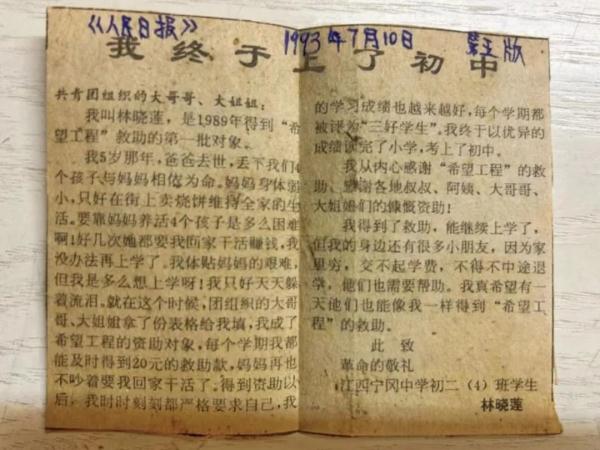 《人民日报》 1993年7月10日 第五版
我终于上了初中
共青团组织的大哥哥、大姐姐：
我叫林晓莲，是1989年得到“希
望工程”救助的第一批对象。
我5岁那年，爸爸去世，丢下我们4
个孩子与妈妈相依为命。妈妈身体弱
小，只好在街上卖烧饼维持全家的生
活。要靠妈妈养活4个孩子是多么困难
啊！好几次她都要我回家干活赚钱，我
没办法再上学了。我体贴妈妈的艰难，
但我是多么想上学呀！我只好天天躲
着流泪。就在这个时候，团组织的大哥
哥、大姐姐拿了份表格给我填，我成了
希望工程的资助对象，每个学期我都
能及时得到20元的救助款，妈妈再也
不吵着要我回家干活了。得到资助以
后，我时时刻刻都严格要求自己，我
的学习成绩也越来越好，每个学期都
被评为“三好学生”。我终于以优异的
成绩读完了小学，考上了初中。
我从内心感谢“希望工程”的救
助、感谢各地叔叔、阿姨、大哥哥、
大姐姐们的慷慨资助！
我得到了救助，能继续上学了，
但我的身边还有很多小朋友，因为家
里穷，交不起学费，不得不中途退
学，他们也需要帮助。我真希望有一
天他们也能像我一样得到“希望工
程”的救助。
此致
革命的敬礼
江西宁冈中学初二（4）班学生
林晓莲